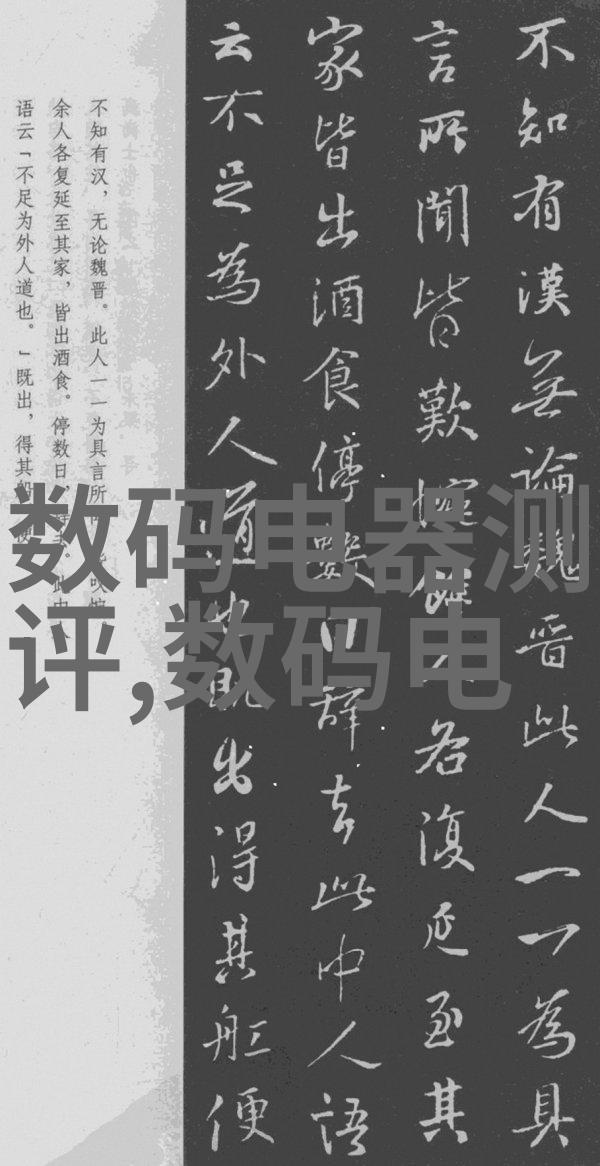 不知有漢無論魏晉此人一一為具
言所聞皆歎惋餘人各復延至其
家皆出酒食停數日辭去此中人語
云不足為外人道也既出得其船便
不知有汉，无论魏晋。此人一一为具言所
余人各复延至其家，皆出酒食。停数日
语云「不足为外人道也。」既出，得其船
数码电器测
评,数码电